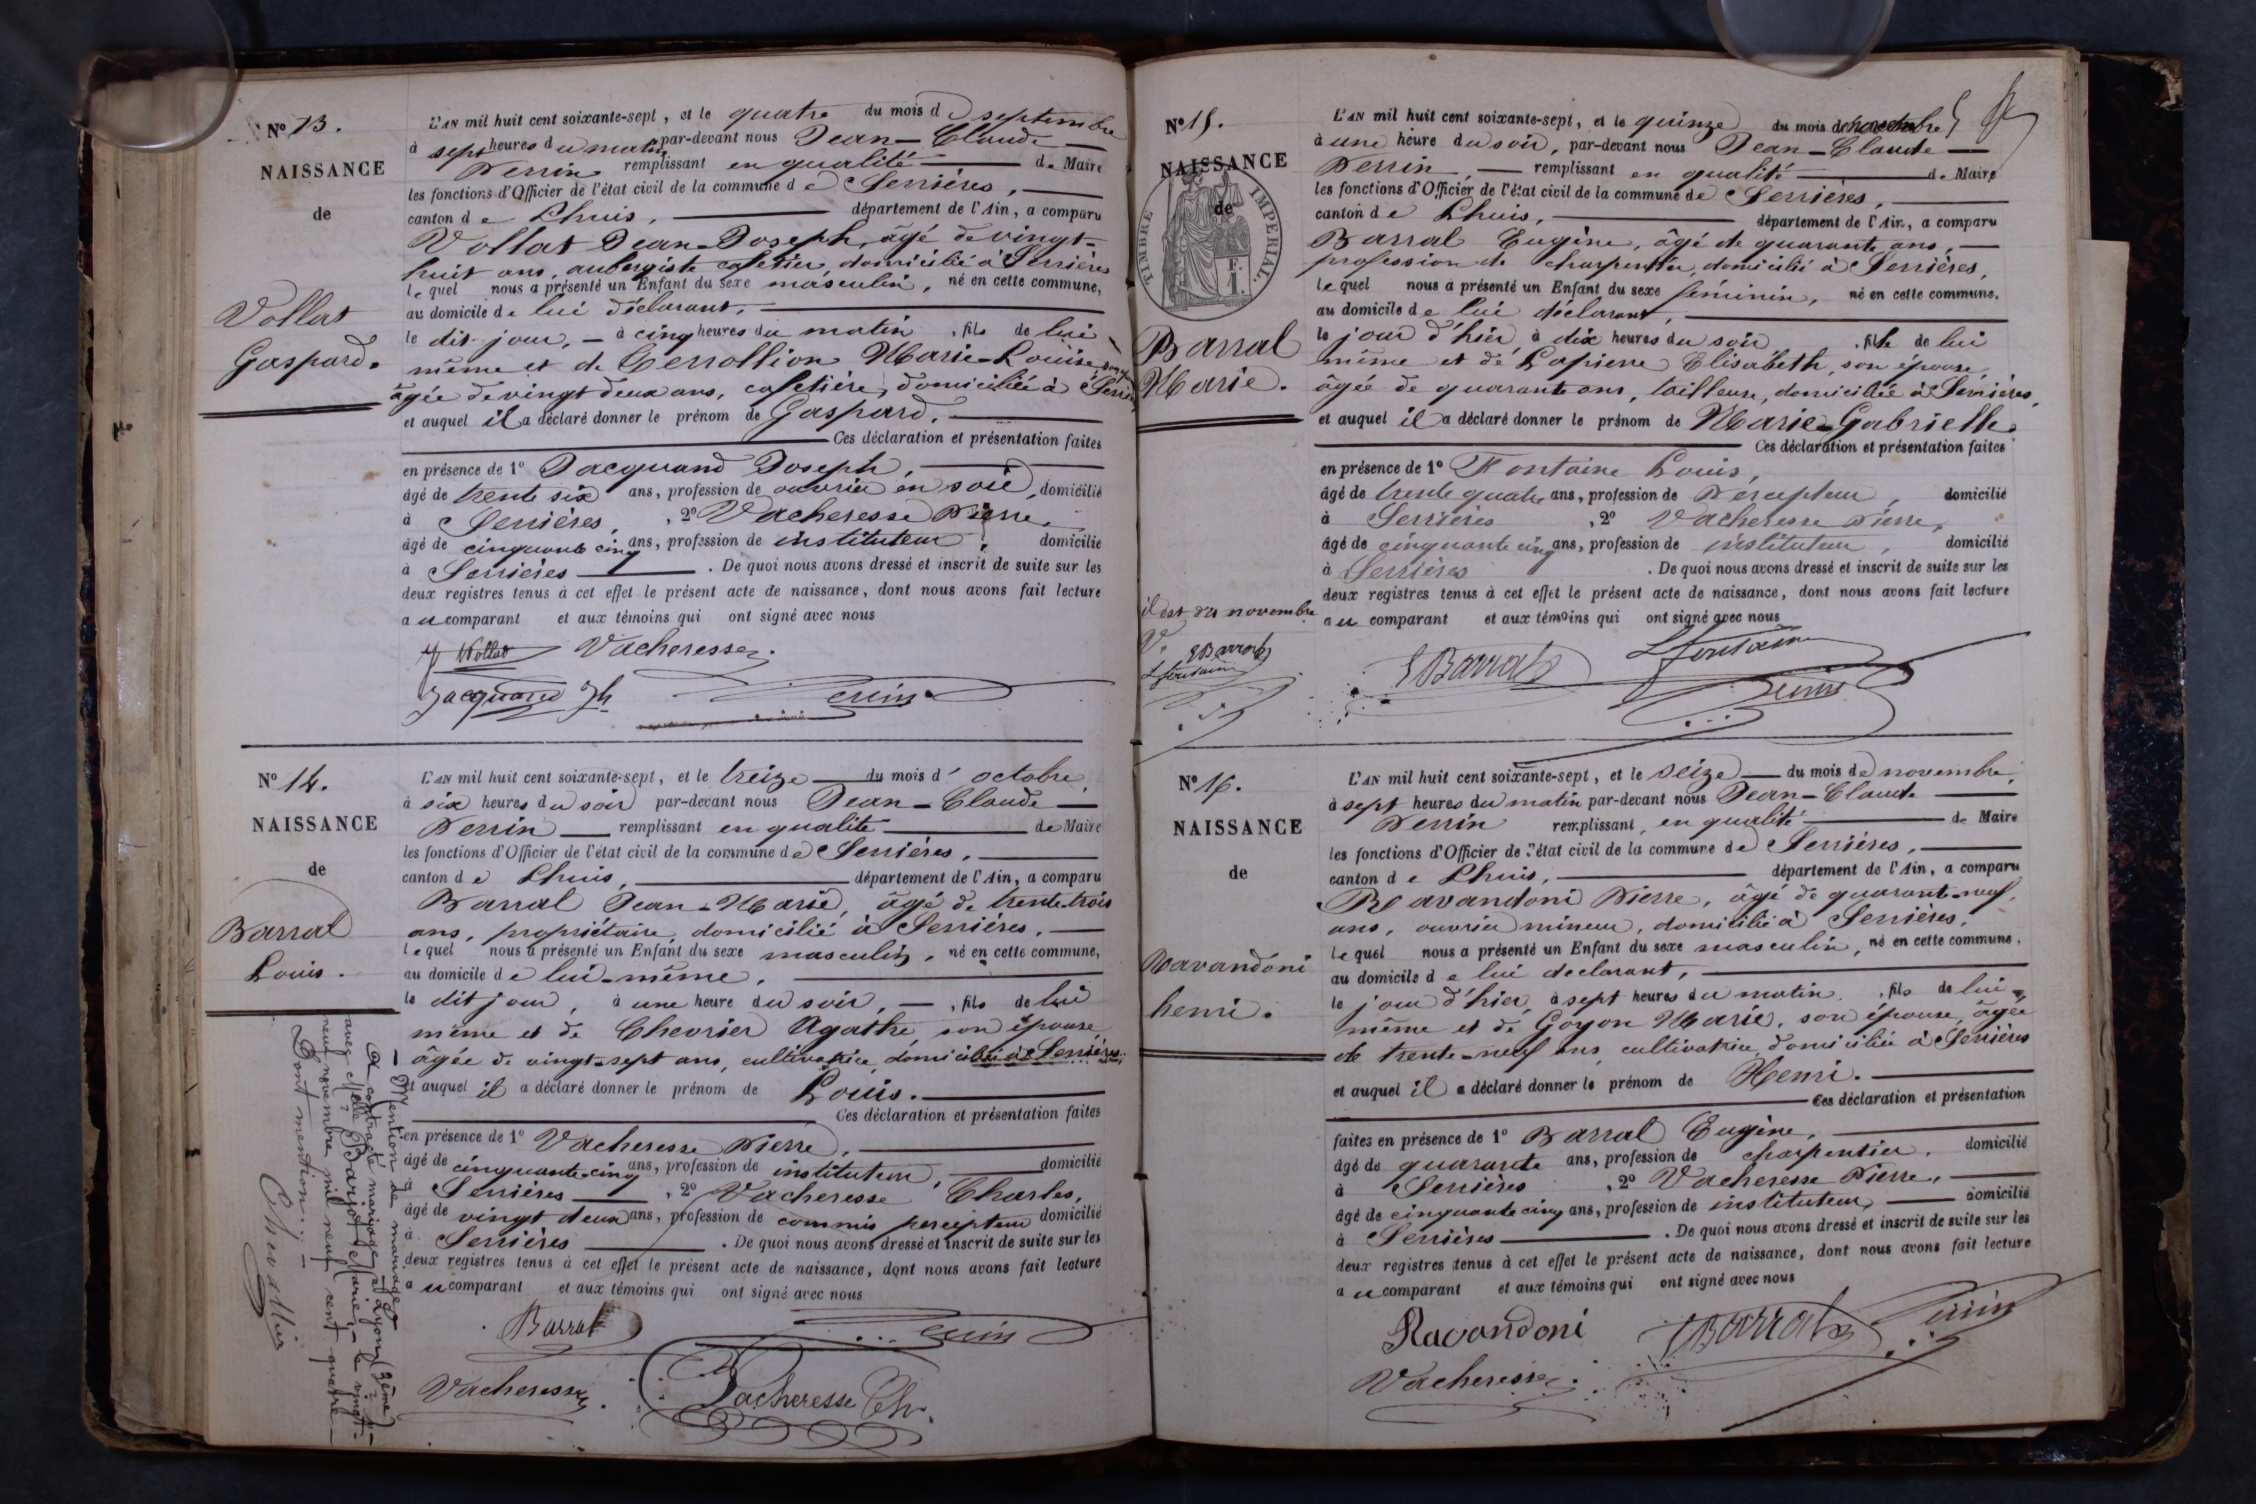 Nº 13.
NAISSANCE
de
Vollat
Gaspard.
L'AN mil huit cent soixante-sept, et le quatre du mois de septembre
à sept heures du matin par-devant nous Jean-Claude
Perrin remplissant en qualité de Maire
les fonctions d'Officier de l'état civil de la commune de Serrières,
canton de Lhuis, département de l'Ain, a comparu
Vollat Jean-Joseph, âgé de vingt-
huit ans, aubergiste cafetier, domicilié à Serrières
lequel nous a présenté un Enfant du sexe masculin, né en cette commune,
au domicile de lui déclarant,
le dit jour, à cinq heures du matin, fils de lui
même et de Cerrollion Marie-Louise
âgée de vingt deux ans, cafetière, domiciliée à
et auquel il a déclaré donner le prénom de Gaspard.
Ces déclaration et présentation faites
en présence de 1º Jacquand Joseph,
âgé de trente six ans, profession de ouvrier en soie, domicilié
à Serrières, 2º Vacheresse Pierre,
âgé de cinquante cinq ans, profession de instituteur, domicilié
à Serrières. De quoi nous avons dressé et inscrit de suite sur les
deux registres tenus à cet effet le présent acte de naissance, dont nous avons fait lecture
au comparant et aux témoins qui ont signé avec nous
Vollat Vacheresse
Jacquand Jh Perrin
Nº 14.
NAISSANCE
de
Barral
Louis.
L'AN mil huit cent soixante-sept, et le treize du mois d'octobre,
à six heures du soir par-devant nous Jean-Claude
Perrin remplissant en qualité de Maire
les fonctions d'Officier de l'état civil de la commune de Serrières,
canton de Lhuis, département de l'Ain, a comparu
Barral Jean-Marie, âgé de trente-trois
ans, propriétaire, domicilié à Serrières.
lequel nous a présenté un Enfant du sexe masculin, né en cette commune,
au domicile de lui-même,
le dit jour, à une heure du soir, fils de lui
même et de Chevrier Agathe, son épouse
âgée de vingt-sept ans, cultivatrice, domiciliée à Serrières
et auquel il a déclaré donner le prénom de Louis.
Ces déclaration et présentation faites
en présence de 1º Vacheresse Pierre,
âgé de cinquante-cinq ans, profession de instituteur, domicilié
à Serrières, 2º Vacheresse Charles,
âgé de vingt deux ans, profession de commis percepteur domicilié
à Serrières. De quoi nous avons dressé et inscrit de suite sur les
deux registres tenus à cet effet le présent acte de naissance, dont nous avons fait lecture
au comparant et aux témoins qui ont signé avec nous
Barral Perrin
Vacheresse Vacheresse Ch.
Mention de mariage
A contracté mariage à Lyon (3ème)
avec Melle Barjot Marie, le vingt-
neuf novembre mil neuf cent quatre
Dont mention.
Chevallier
Nº 15.
NAISSANCE
de
TIMBRE IMPERIAL.
Barral
Marie.
il est dit novembre
V. EBarral
LFontaine
L'AN mil huit cent soixante-sept, et le quinze du mois de novembre
à une heure du soir, par-devant nous Jean-Claude
Perrin, remplissant en qualité de Maire
les fonctions d'Officier de l'état civil de la commune de Serrières,
canton de Lhuis, département de l'Ain, a comparu
Barral Eugène, âgé de quarante ans,
profession de charpentier, domicilié à Serrières,
lequel nous a présenté un Enfant du sexe féminin, né en cette commune.
au domicile de lui déclarant,
le jour d'hier, à dix heures du soir, fille de lui
même et de Lapierre Elisabeth, son épouse,
âgée de quarante ans, tailleuse, domiciliée à Serrières,
et auquel il a déclaré donner le prénom de Marie-Gabrielle.
Ces déclaration et présentation faites
en présence de 1º Fontaine Louis,
âgé de trente quatre ans, profession de Percepteur, domicilié
à Serrières, 2º Vacheresse Pierre,
âgé de cinquante cinq ans, profession de instituteur, domicilié
à Serrières. De quoi nous avons dressé et inscrit de suite sur les
deux registres tenus à cet effet le présent acte de naissance, dont nous avons fait lecture
au comparant et aux témoins qui ont signé avec nous
EBarral LFontaine
Perrin
Nº 16.
NAISSANCE
de
Ravandoni
henri.
L'AN mil huit cent soixante-sept, et le seize du mois de novembre,
à sept heures du matin par-devant nous Jean-Claude
Perrin remplissant, en qualité de Maire
les fonctions d'Officier de l'état civil de la commune de Serrières,
canton de Lhuis, département de l'Ain, a comparu
Ravandoni Pierre, âgé de quarante-neuf
ans, ouvrier mineur, domicilié à Serrières,
lequel nous a présenté un Enfant du sexe masculin, né en cette commune,
au domicile de lui déclarant,
le jour d'hier, à sept heures du matin, fils de lui
même et de Goyon Marie, son épouse, âgée
de trente-neuf ans, cultivatrice, domiciliée à Serrières
et auquel il a déclaré donner le prénom de Henri.
Ces déclaration et présentation
faites en présence de 1º Barral Eugène,
âgé de quarante ans, profession de charpentier, domicilié
à Serrières, 2º Vacheresse Pierre,
âgé de cinquante cinq ans, profession de instituteur, domicilié
à Serrières. De quoi nous avons dressé et inscrit de suite sur les
deux registres tenus à cet effet le présent acte de naissance, dont nous avons fait lecture
au comparant et aux témoins qui ont signé avec nous
Ravandoni EBarral Perrin
Vacheresse